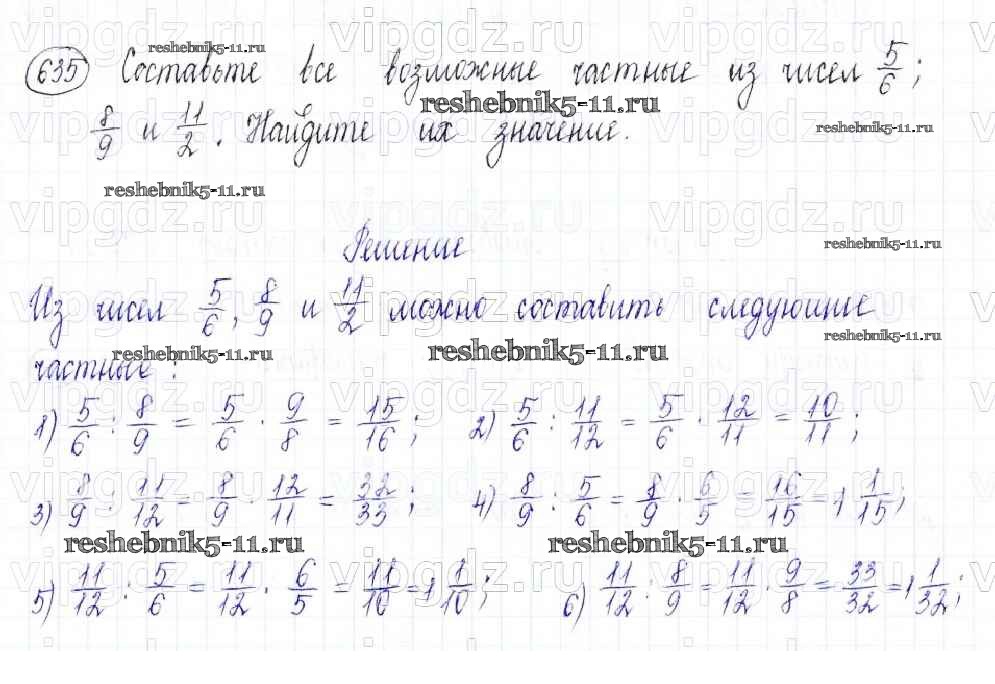 635 Составьте все возможные частные из чисел 5/6;
8/9 и 11/2. Найдите их значение.
Решение
Из чисел 5/6, 8/9 и 11/2 можно составить следующие
частные:
1) 5/6 : 8/9 = 5/6 · 9/8 = 15/16; 2) 5/6 : 11/12 = 5/6 · 12/11 = 10/11;
3) 8/9 : 11/12 = 8/9 · 12/11 = 32/33; 4) 8/9 : 5/6 = 8/9 · 6/5 = 16/15 = 1 1/15;
5) 11/12 : 5/6 = 11/12 · 6/5 = 11/10 = 1 1/10; 6) 11/12 : 8/9 = 11/12 · 9/8 = 33/32 = 1 1/32;
reshebnik5-11.ru
vipgdz.ru